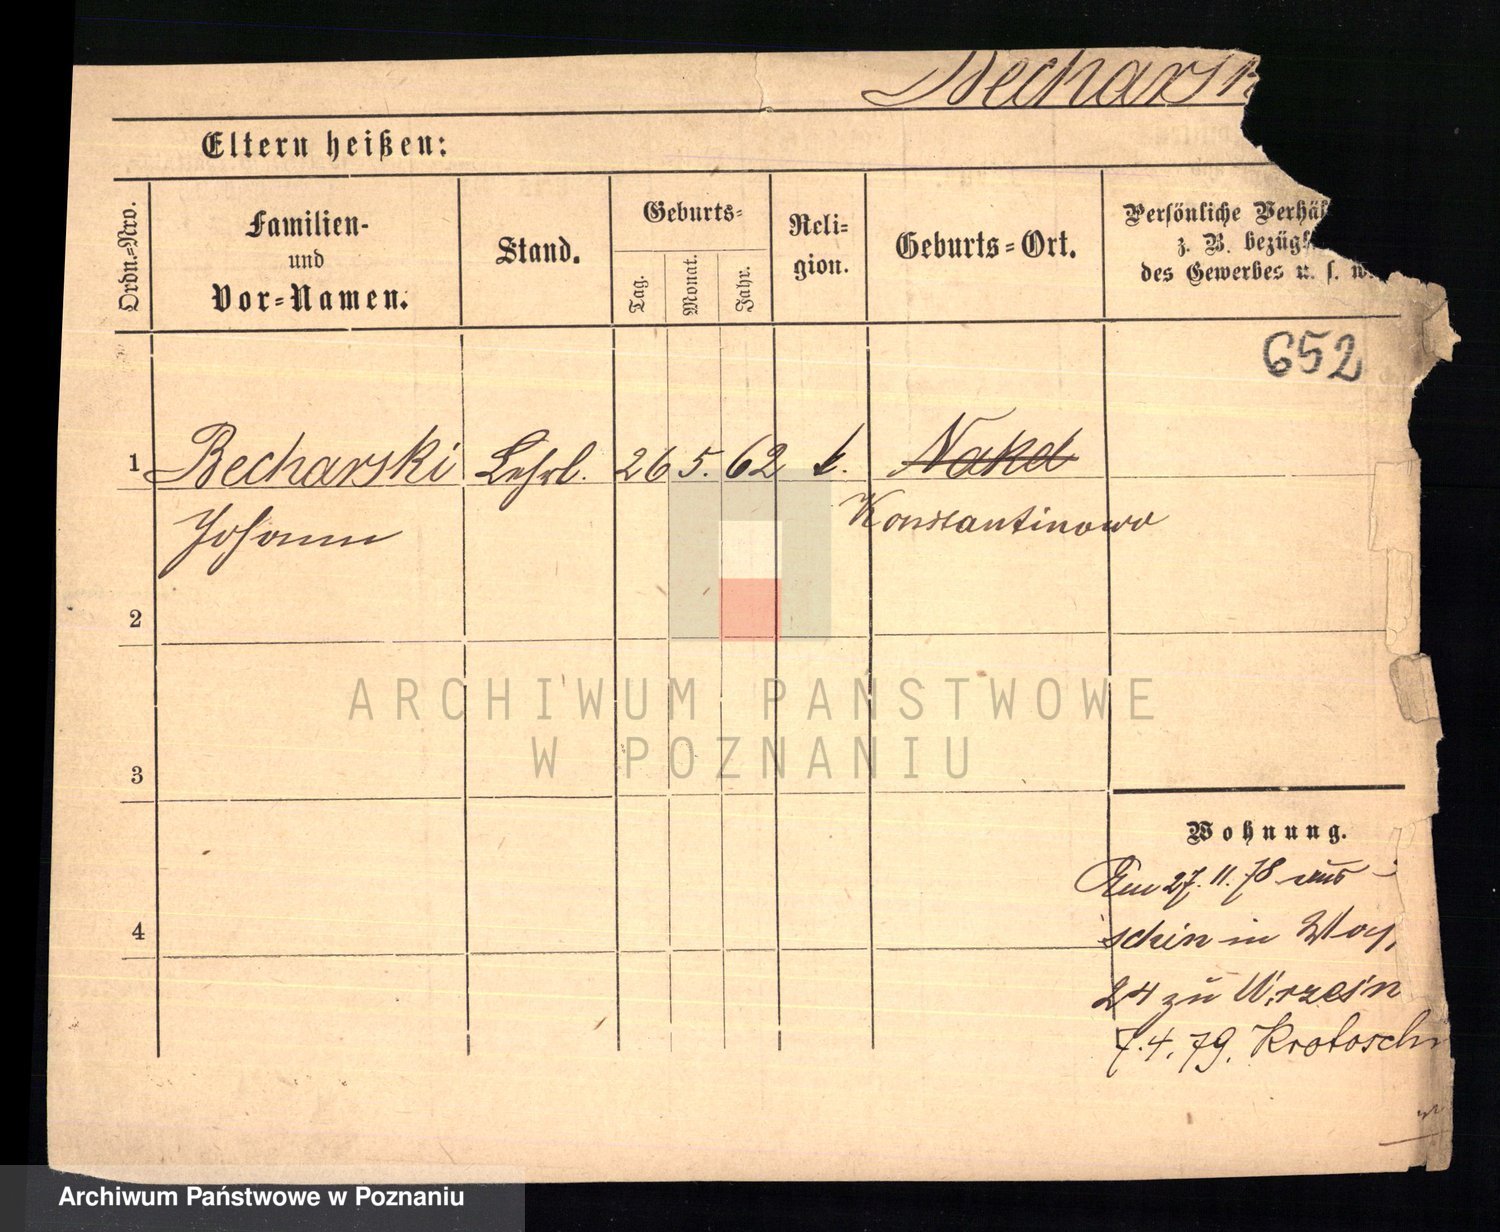 Becharsk
Eltern heißen:
Ordn.-Nro.
Familien-
und
Vor-Namen.
Stand.
Geburts-
Tag.
Monat.
Jahr.
Reli-
gion.
Geburts-Ort.
Persönliche Verhäl
z. B. bezügl
des Gewerbes u. s. w.
652
1 Becharski Lehrl. 26 5. 62 k. Nakel
Johann Konstantinowo
2
3
4
Wohnung.
Am 27. 11. 78 aus
schin in
24 zu
7. 4. 79. Krotoschi
ARCHIWUM PAŃSTWOWE
W POZNANIU
Archiwum Państwowe w Poznaniu